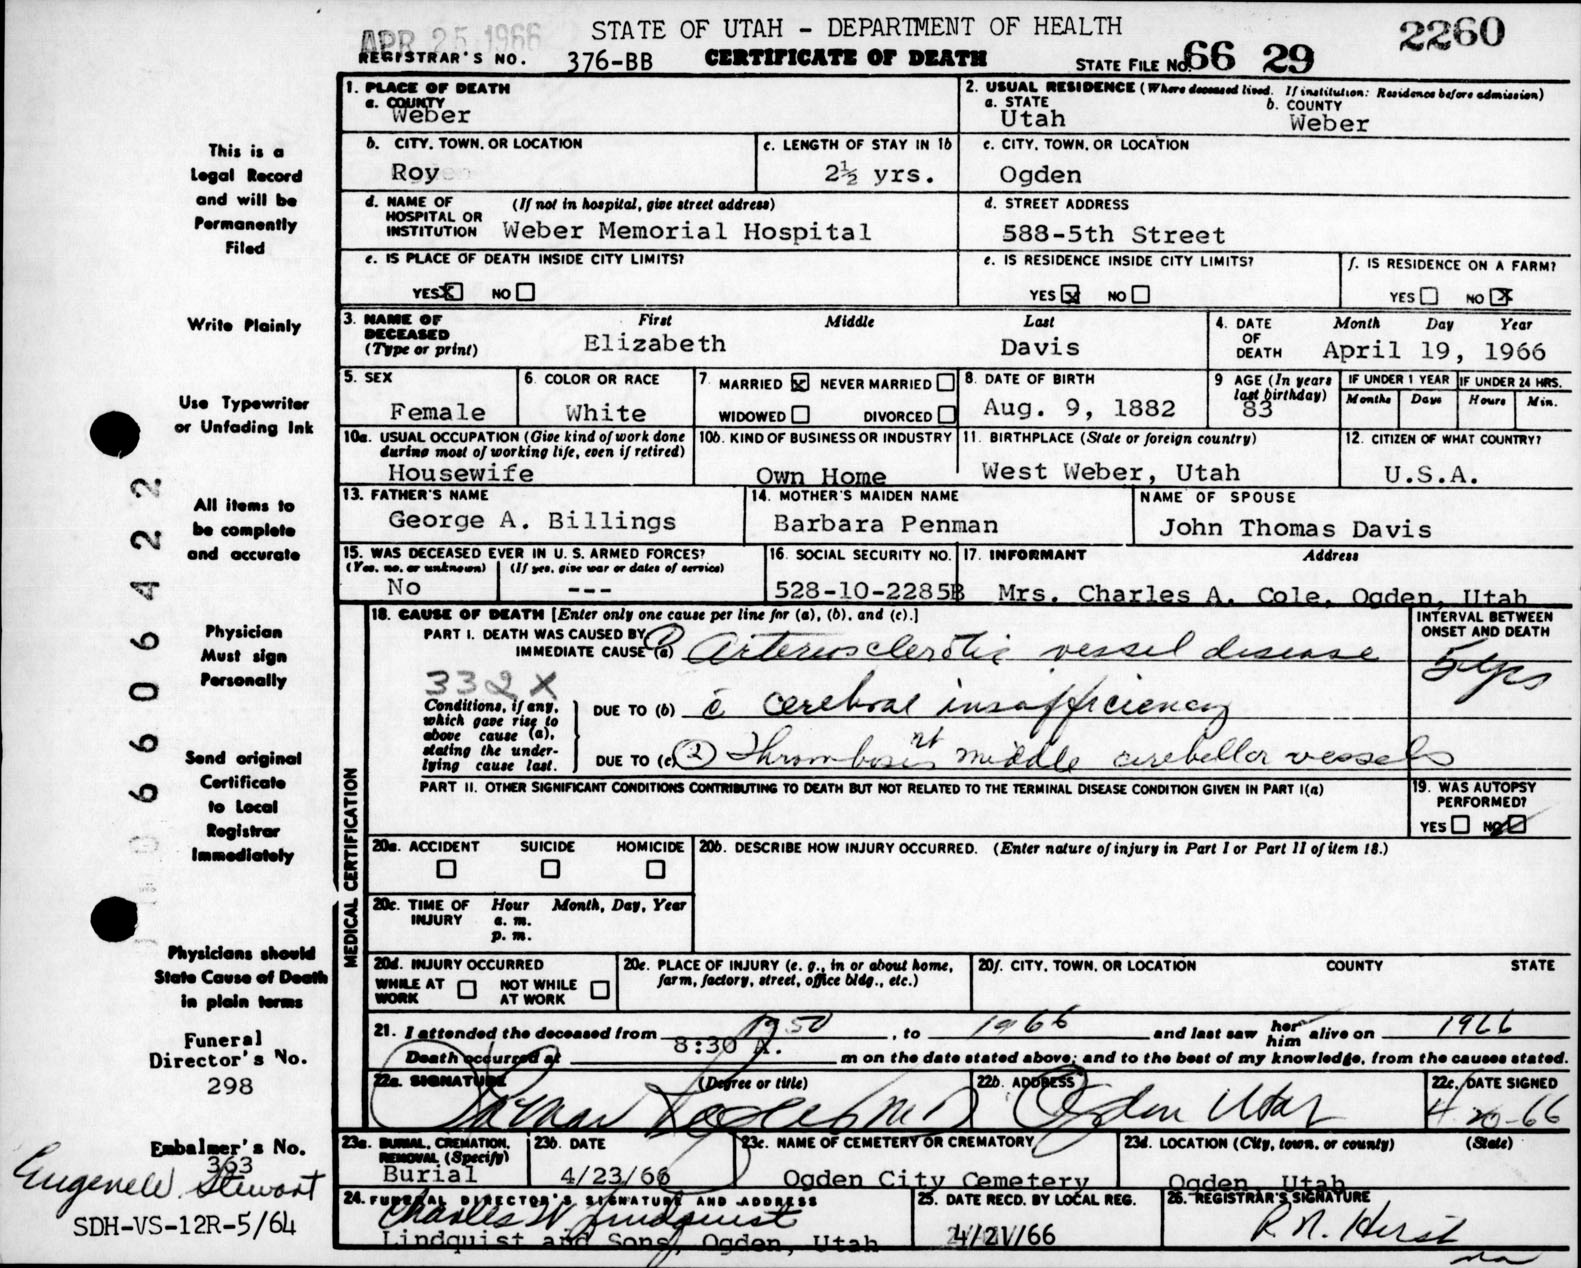 APR 25 1966
STATE OF UTAH - DEPARTMENT OF HEALTH
2260
REGISTRAR'S NO. 376-BB
CERTIFICATE OF DEATH
STATE FILE NO. 66 29
1. PLACE OF DEATH
a. COUNTY
Weber
2. USUAL RESIDENCE (Where deceased lived. If institution: Residence before admission)
a. STATE
Utah
b. COUNTY
Weber
b. CITY, TOWN, OR LOCATION
Roy
c. LENGTH OF STAY IN 1b
2½ yrs.
c. CITY, TOWN, OR LOCATION
Ogden
d. NAME OF HOSPITAL OR INSTITUTION
(If not in hospital, give street address)
Weber Memorial Hospital
d. STREET ADDRESS
588-5th Street
e. IS PLACE OF DEATH INSIDE CITY LIMITS?
YES X NO
e. IS RESIDENCE INSIDE CITY LIMITS?
YES X NO
f. IS RESIDENCE ON A FARM?
YES NO X
3. NAME OF DECEASED (Type or print)
First
Middle
Last
Elizabeth
Davis
4. DATE OF DEATH
Month Day Year
April 19, 1966
5. SEX
Female
6. COLOR OR RACE
White
7. MARRIED X NEVER MARRIED
WIDOWED DIVORCED
8. DATE OF BIRTH
Aug. 9, 1882
9 AGE (In years last birthday)
83
IF UNDER 1 YEAR
Months Days
IF UNDER 24 HRS.
Hours Min.
10a. USUAL OCCUPATION (Give kind of work done during most of working life, even if retired)
Housewife
10b. KIND OF BUSINESS OR INDUSTRY
Own Home
11. BIRTHPLACE (State or foreign country)
West Weber, Utah
12. CITIZEN OF WHAT COUNTRY?
U.S.A.
13. FATHER'S NAME
George A. Billings
14. MOTHER'S MAIDEN NAME
Barbara Penman
NAME OF SPOUSE
John Thomas Davis
15. WAS DECEASED EVER IN U. S. ARMED FORCES?
(Yes, no, or unknown) (If yes, give war or dates of service)
No ---
16. SOCIAL SECURITY NO.
528-10-2285B
17. INFORMANT Address
Mrs. Charles A. Cole, Ogden, Utah
MEDICAL CERTIFICATION
18. CAUSE OF DEATH [Enter only one cause per line for (a), (b), and (c).]
INTERVAL BETWEEN ONSET AND DEATH
PART I. DEATH WAS CAUSED BY:
IMMEDIATE CAUSE (a) (1) Arteriosclerotic vessel disease
5 yrs
332X
Conditions, if any, which gave rise to above cause (a), stating the underlying cause last.
DUE TO (b) c̄ cerebral insufficiency
DUE TO (c) (2) Thrombosis rt middle cerebellar vessels
PART II. OTHER SIGNIFICANT CONDITIONS CONTRIBUTING TO DEATH BUT NOT RELATED TO THE TERMINAL DISEASE CONDITION GIVEN IN PART I(a)
19. WAS AUTOPSY PERFORMED?
YES NO
20a. ACCIDENT SUICIDE HOMICIDE
20b. DESCRIBE HOW INJURY OCCURRED. (Enter nature of injury in Part I or Part II of item 18.)
20c. TIME OF INJURY
Hour Month, Day, Year
a. m.
p. m.
20d. INJURY OCCURRED
WHILE AT WORK NOT WHILE AT WORK
20e. PLACE OF INJURY (e. g., in or about home, farm, factory, street, office bldg., etc.)
20f. CITY, TOWN, OR LOCATION COUNTY STATE
21. I attended the deceased from 1950, to 1966 and last saw her him alive on 1966
Death occurred at 8:30 A. m on the date stated above; and to the best of my knowledge, from the causes stated.
22a. SIGNATURE (Degree or title)
22b. ADDRESS
Ogden Utah
22c. DATE SIGNED
4-20-66
23a. BURIAL, CREMATION, REMOVAL (Specify)
Burial
23b. DATE
4/23/66
23c. NAME OF CEMETERY OR CREMATORY
Ogden City Cemetery
23d. LOCATION (City, town, or county) (State)
Ogden, Utah
24. FUNERAL DIRECTOR'S SIGNATURE AND ADDRESS
Charles W Lindquist
Lindquist and Sons, Ogden, Utah
25. DATE RECD. BY LOCAL REG.
4/21/66
26. REGISTRAR'S SIGNATURE
R. N. Hirst
This is a
Legal Record
and will be
Permanently
Filed
Write Plainly
Use Typewriter
or Unfading Ink
All items to
be complete
and accurate
Physician
Must sign
Personally
Send original
Certificate
to Local
Registrar
Immediately
Physicians should
State Cause of Death
in plain terms
Funeral
Director's No.
298
Embalmer's No.
363
Eugene W. Stewart
SDH-VS-12R-5/64
6606422